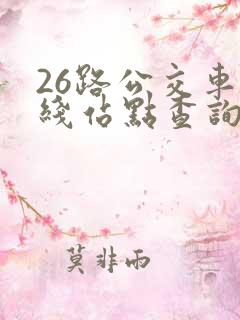 26路公交車
綫佔點查詢
莫非雨